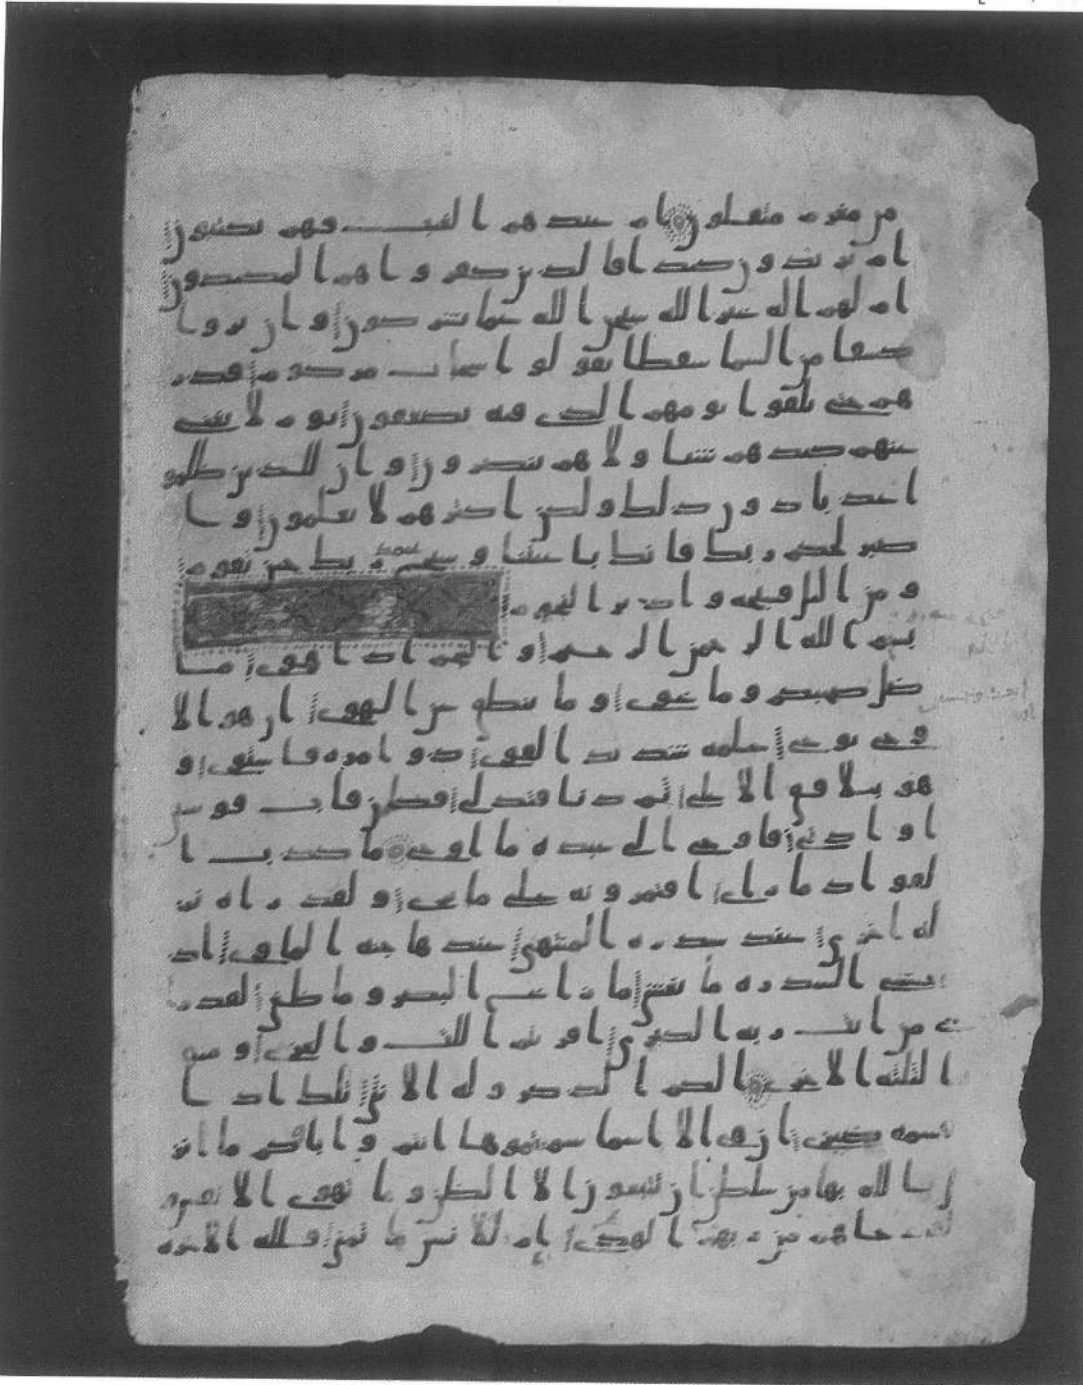 من مغرم مثقلون ام عندهم الغيب فهم يكتبون
ام يريدون كيدا فالذين كفروا هم المكيدون
ام لهم اله غير الله سبحن الله عما يشركون وان يروا
كسفا من السما سقطا يقولوا سحاب مركوم فذر
هم حتى يلقوا يومهم الذي فيه يصعقون يوم لا يغني
عنهم كيدهم شيا ولا هم ينصرون وان للذين ظلمو
ا عذابا دون ذلك ولكن اكثرهم لا يعلمون وا
صبر لحكم ربك فانك باعيننا وسبح بحمد ربك حين تقوم
ومن اليل فسبحه وادبر النجوم
بسم الله الرحمن الرحيم والنجم اذا هوى ما
ضل صحبكم وما غوى وما ينطق عن الهوى ان هو الا
وحي يوحى علمه شديد القوى ذو امره فاستوى و
هو بالافق الاعلى ثم دنا فتدلى فكان قاب قوسين
او ادنى فاوحى الى عبده ما اوحى ما كذب ا
لفواد ما راى افتمرونه على ما يرى ولقد راه نز
له اخرى عند سدره المنتهى عندها جنه الماوى اذ
يغشى السدره ما يغشى ما زاغ البصر وما طغى لقد را
ى من ايت ربه الكبرى افريتم اللت والعزى ومنو
ه الثلثه الاخرى الكم الذكر وله الانثى تلك اذا
قسمه ضيزى ان هي الا اسما سميتموها انتم واباوكم ما انز
ل الله بها من سلطن ان يتبعون الا الظن وما تهوى الانفس و
لقد جاهم من ربهم الهدى ام للانسن ما تمنى فلله الاخره